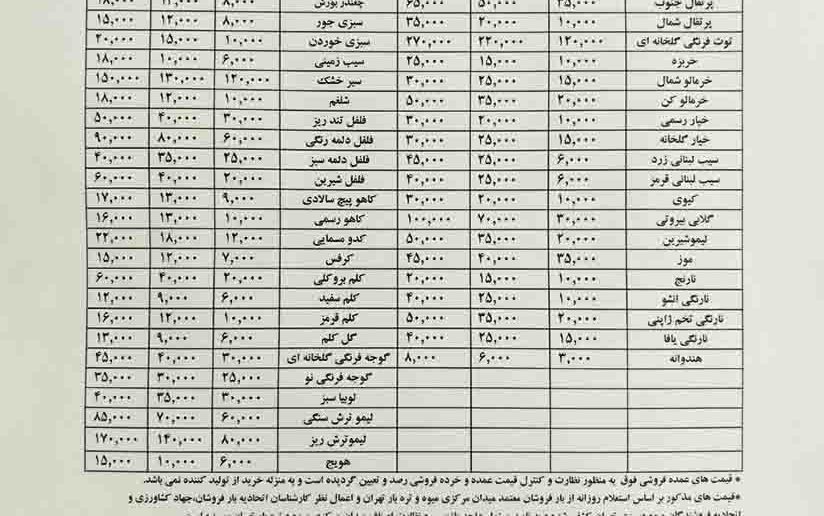 پرتقال جنوب ۳۵,۰۰۰ ۵۰,۰۰۰ ۶۵,۰۰۰ چغندر بورش ۸,۰۰۰ ۱۸,۰۰۰
پرتقال شمال ۱۰,۰۰۰ ۲۰,۰۰۰ ۳۵,۰۰۰ سبزی جور ۸,۰۰۰ ۱۲,۰۰۰ ۱۵,۰۰۰
توت فرنگی گلخانه ای ۱۲۰,۰۰۰ ۲۲۰,۰۰۰ ۲۷۰,۰۰۰ سبزی خوردن ۱۰,۰۰۰ ۱۵,۰۰۰ ۲۰,۰۰۰
خربزه ۱۰,۰۰۰ ۱۵,۰۰۰ ۲۵,۰۰۰ سیب زمینی ۶,۰۰۰ ۱۰,۰۰۰ ۱۸,۰۰۰
خرمالو شمال ۱۵,۰۰۰ ۲۵,۰۰۰ ۳۰,۰۰۰ سیر خشک ۱۲۰,۰۰۰ ۱۳۰,۰۰۰ ۱۵۰,۰۰۰
خرمالو کن ۲۰,۰۰۰ ۳۵,۰۰۰ ۵۰,۰۰۰ شلغم ۱۰,۰۰۰ ۱۲,۰۰۰ ۱۸,۰۰۰
خیار رسمی ۱۰,۰۰۰ ۲۰,۰۰۰ ۳۰,۰۰۰ فلفل تند ریز ۳۰,۰۰۰ ۴۰,۰۰۰ ۵۰,۰۰۰
خیار گلخانه ۱۵,۰۰۰ ۲۵,۰۰۰ ۳۰,۰۰۰ فلفل دلمه رنگی ۶۰,۰۰۰ ۸۰,۰۰۰ ۹۰,۰۰۰
سیب لبنانی زرد ۶,۰۰۰ ۲۵,۰۰۰ ۴۵,۰۰۰ فلفل دلمه سبز ۲۵,۰۰۰ ۳۵,۰۰۰ ۴۰,۰۰۰
سیب لبنانی قرمز ۶,۰۰۰ ۲۵,۰۰۰ ۴۰,۰۰۰ فلفل شیرین ۲۰,۰۰۰ ۴۰,۰۰۰ ۶۰,۰۰۰
کیوی ۱۰,۰۰۰ ۲۰,۰۰۰ ۳۰,۰۰۰ کاهو پیچ سالادی ۹,۰۰۰ ۱۳,۰۰۰ ۱۷,۰۰۰
گلابی بیروتی ۳۰,۰۰۰ ۷۰,۰۰۰ ۱۰۰,۰۰۰ کاهو رسمی ۱۰,۰۰۰ ۱۳,۰۰۰ ۱۶,۰۰۰
لیموشیرین ۲۰,۰۰۰ ۳۵,۰۰۰ ۵۰,۰۰۰ کدو مسمایی ۱۲,۰۰۰ ۱۸,۰۰۰ ۲۲,۰۰۰
موز ۳۵,۰۰۰ ۴۰,۰۰۰ ۴۵,۰۰۰ کرفس ۷,۰۰۰ ۱۲,۰۰۰ ۱۵,۰۰۰
نارنج ۱۰,۰۰۰ ۱۵,۰۰۰ ۲۰,۰۰۰ کلم بروکلی ۲۰,۰۰۰ ۴۰,۰۰۰ ۶۰,۰۰۰
نارنگی انشو ۱۰,۰۰۰ ۲۵,۰۰۰ ۴۰,۰۰۰ کلم سفید ۶,۰۰۰ ۹,۰۰۰ ۱۲,۰۰۰
نارنگی تخم ژاپنی ۲۰,۰۰۰ ۳۵,۰۰۰ ۵۰,۰۰۰ کلم قرمز ۱۰,۰۰۰ ۱۲,۰۰۰ ۱۶,۰۰۰
نارنگی یافا ۱۵,۰۰۰ ۲۵,۰۰۰ ۴۰,۰۰۰ گل کلم ۶,۰۰۰ ۹,۰۰۰ ۱۳,۰۰۰
هندوانه ۳,۰۰۰ ۶,۰۰۰ ۸,۰۰۰ گوجه فرنگی گلخانه ای ۳۰,۰۰۰ ۴۰,۰۰۰ ۴۵,۰۰۰
گوجه فرنگی نو ۲۵,۰۰۰ ۳۰,۰۰۰ ۳۵,۰۰۰
لوبیا سبز ۳۰,۰۰۰ ۳۵,۰۰۰ ۴۰,۰۰۰
لیمو ترش سنگی ۶۰,۰۰۰ ۷۰,۰۰۰ ۸۵,۰۰۰
لیموترش ریز ۸۰,۰۰۰ ۱۴۰,۰۰۰ ۱۷۰,۰۰۰
هویج ۶,۰۰۰ ۱۰,۰۰۰ ۱۵,۰۰۰
* قیمت های عمده فروشی فوق به منظور نظارت و کنترل قیمت عمده و خرده فروشی رصد و تعیین گردیده است و به منزله خرید از تولید کننده نمی باشد.
*قیمت های مذکور بر اساس استعلام روزانه از بار فروشان معتمد میدان مرکزی میوه و تره بار تهران و اعمال نظر کارشناسان اتحادیه بار فروشان،جهاد کشاورزی و